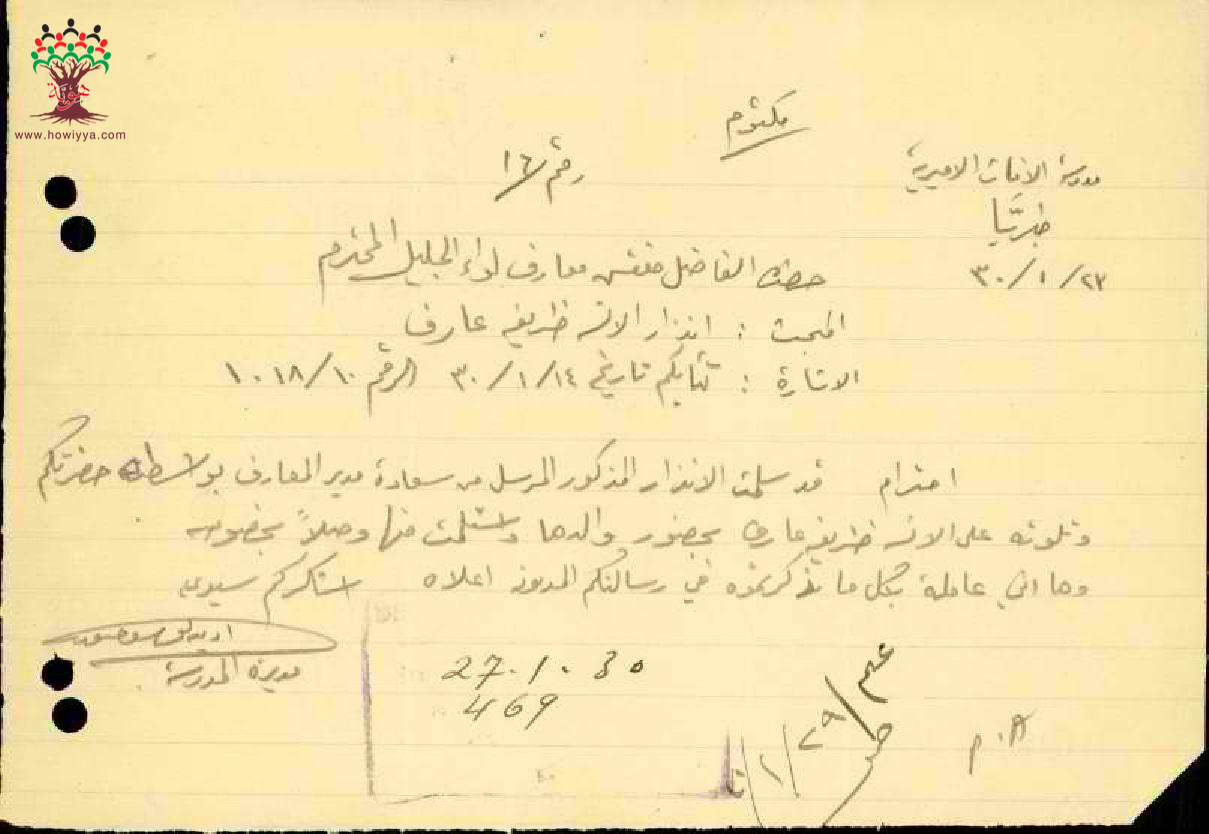 هوية
www.howiyya.com
مكتوم
مدرسة الاناث الاميرية
رقم ١٦/
طبريا
٢٣/١/٣٠
حضرة الفاضل مفتش معارف لواء الجليل المحترم
المبحث : انذار الانسه ظريفه عارف
الاشارة : كتابكم تاريخ ١٤/١/٣٠ الرقم ١٠/١٠١٨
احترام قد سلمت الانذار المذكور المرسل من سعادة مدير المعارف بواسطة حضرتكم
وتلوته على الانسه ظريفه عارف بحضور والدها واستلمت منها وصلاً بخصوصه
وها اني عاملة بكل ما تذكرونه في رسالتكم المدونه اعلاه اشكركم سيدي
مديرة المدرسة
27.1.30
469
علم
٢٩/١